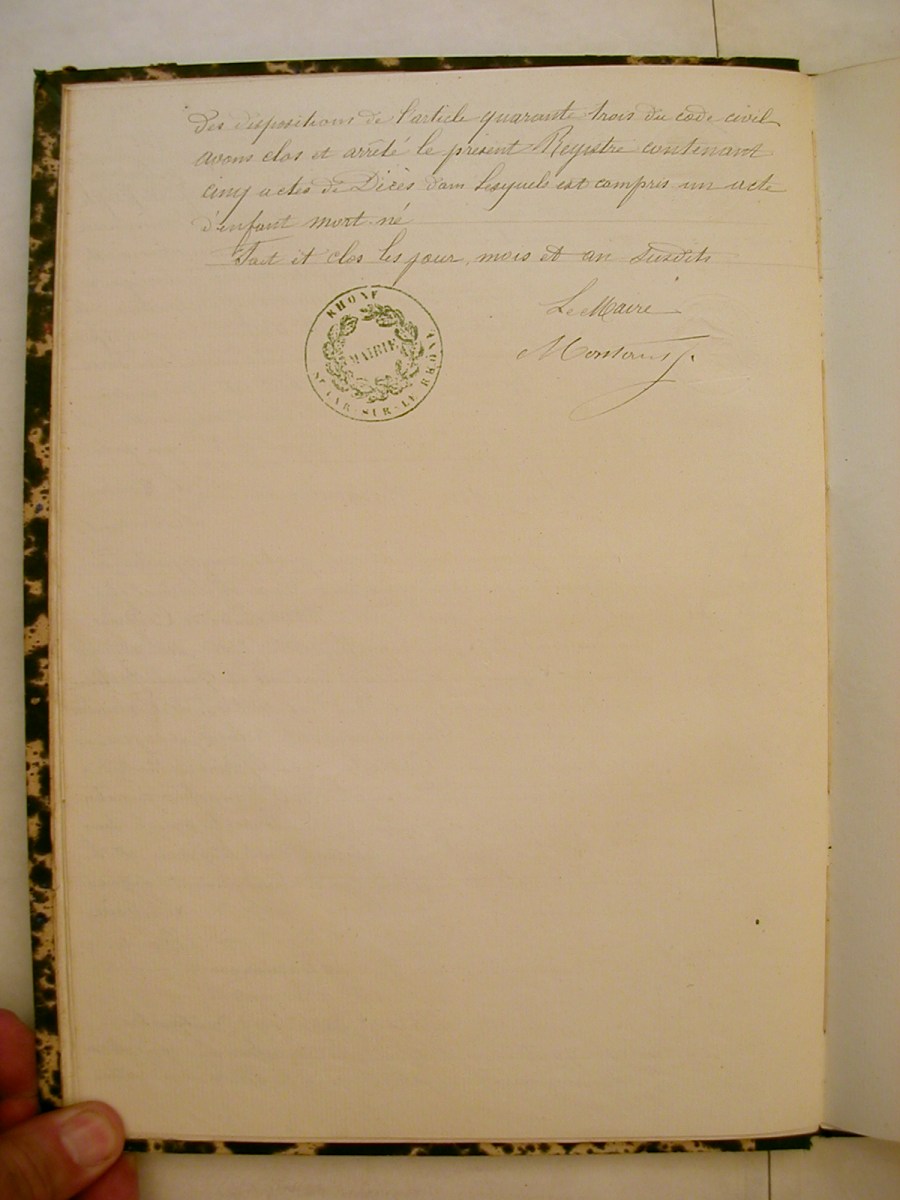 des dispositions de l'article quarante trois du code civil
avons clos et arrêté le présent Registre contenant
cinq actes de Décès dans lesquels est compris un acte
d'enfant mort-né
Fait et clos les jour, mois et an susdits
Le Maire
RHONE
MAIRIE
SUR-LE RHÔNE